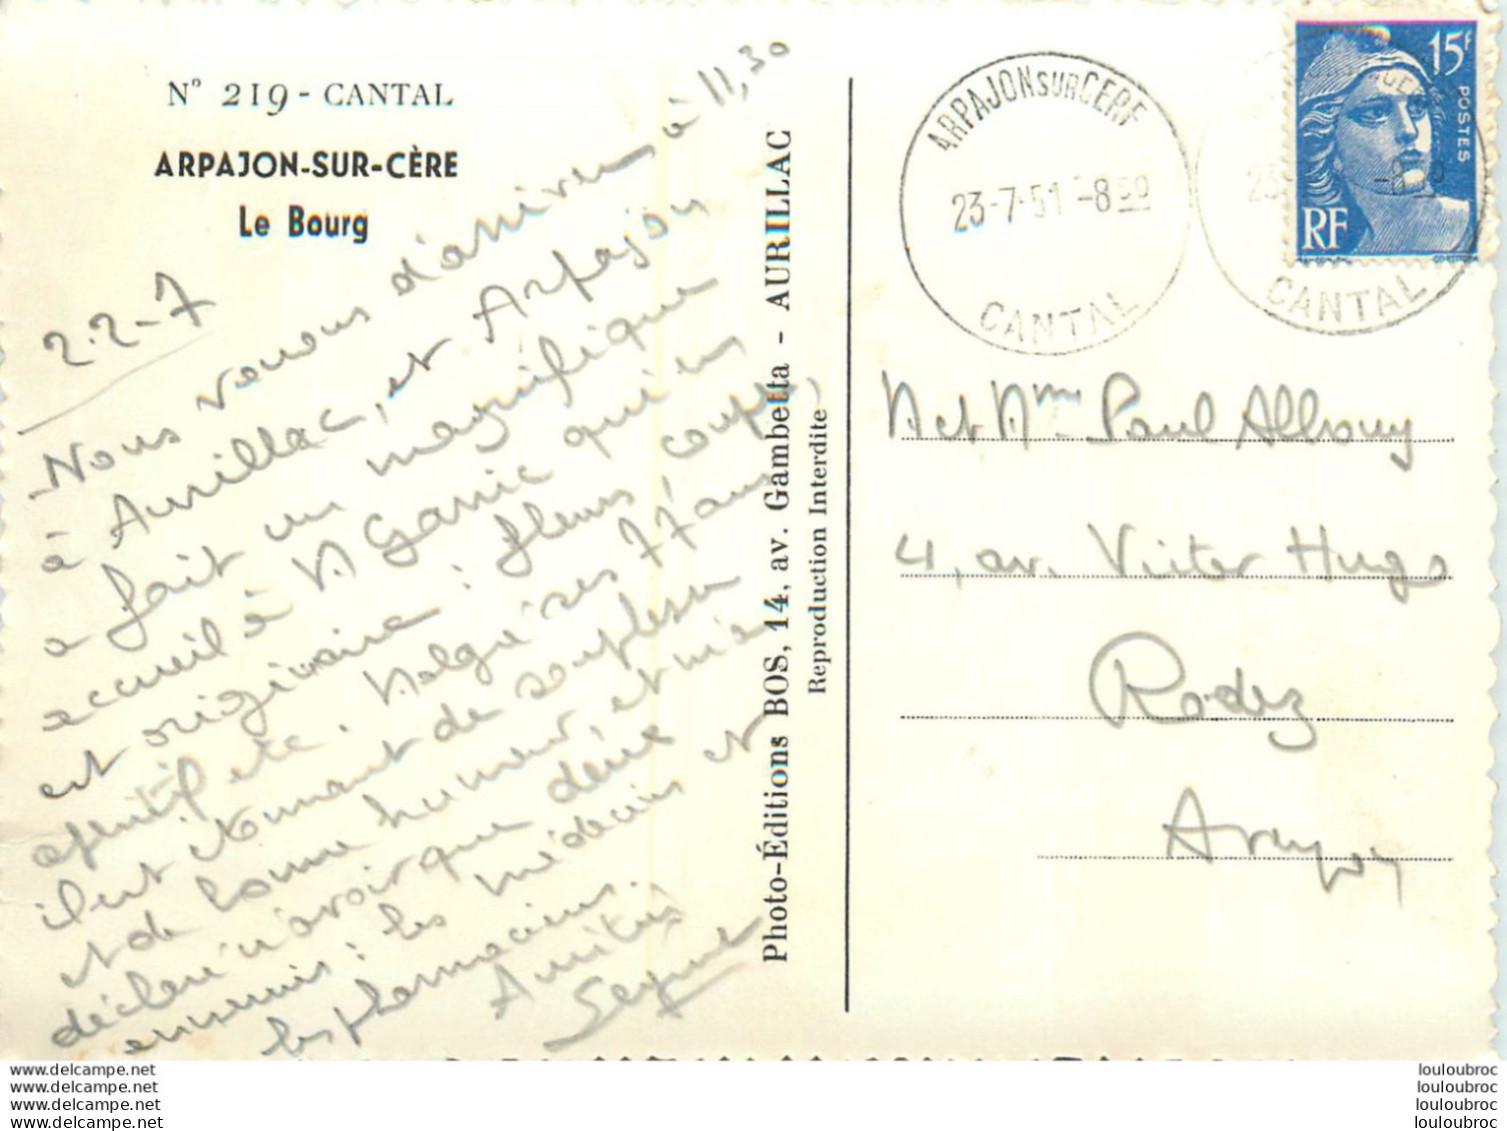 N° 219 - CANTAL
ARPAJON-SUR-CÈRE
Le Bourg
22-7
Nous venons d'arriver à 11,30
à Aurillac, et Arpajon
a fait un magnifique
accueil à M Garric qui en
est originaire : fleurs, coupe,
apéritif etc. Malgré ses 77 ans
il est étonnant de souplesse
et de bonne humeur, et m'a
déclaré n'avoir que deux
ennemis : les médecins et
les pharmaciens
Amitiés
Photo-Éditions BOS, 14, av. Gambetta - AURILLAC
Reproduction Interdite
ARPAJON SUR CERE
23-7-51 -8 50
CANTAL
CANTAL
15F
POSTES
RF
M et Mme Paul Albouy
4, av. Victor Hugo
Rodez
Aveyron
www.delcampe.net
www.delcampe.net
www.delcampe.net
www.delcampe.net
louloubroc
louloubroc
louloubroc
louloubroc